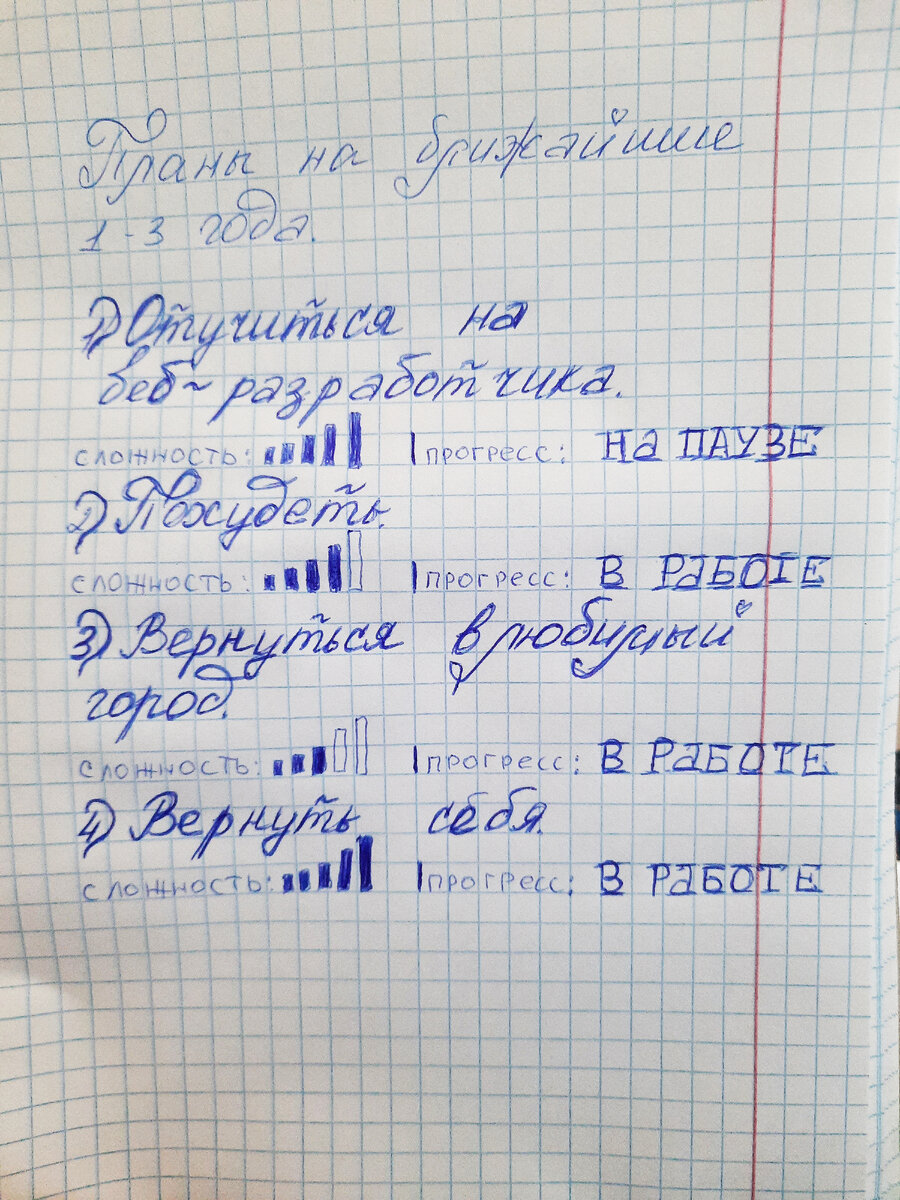 Планы на ближайшие
1-3 года.
1) Отучиться на
веб-разработчика.
сложность: | прогресс: НА ПАУЗЕ
2) Похудеть.
сложность: | прогресс: В РАБОТЕ
3) Вернуться в любимый
город.
сложность: | прогресс: В РАБОТЕ
4) Вернуть себя.
сложность: | прогресс: В РАБОТЕ